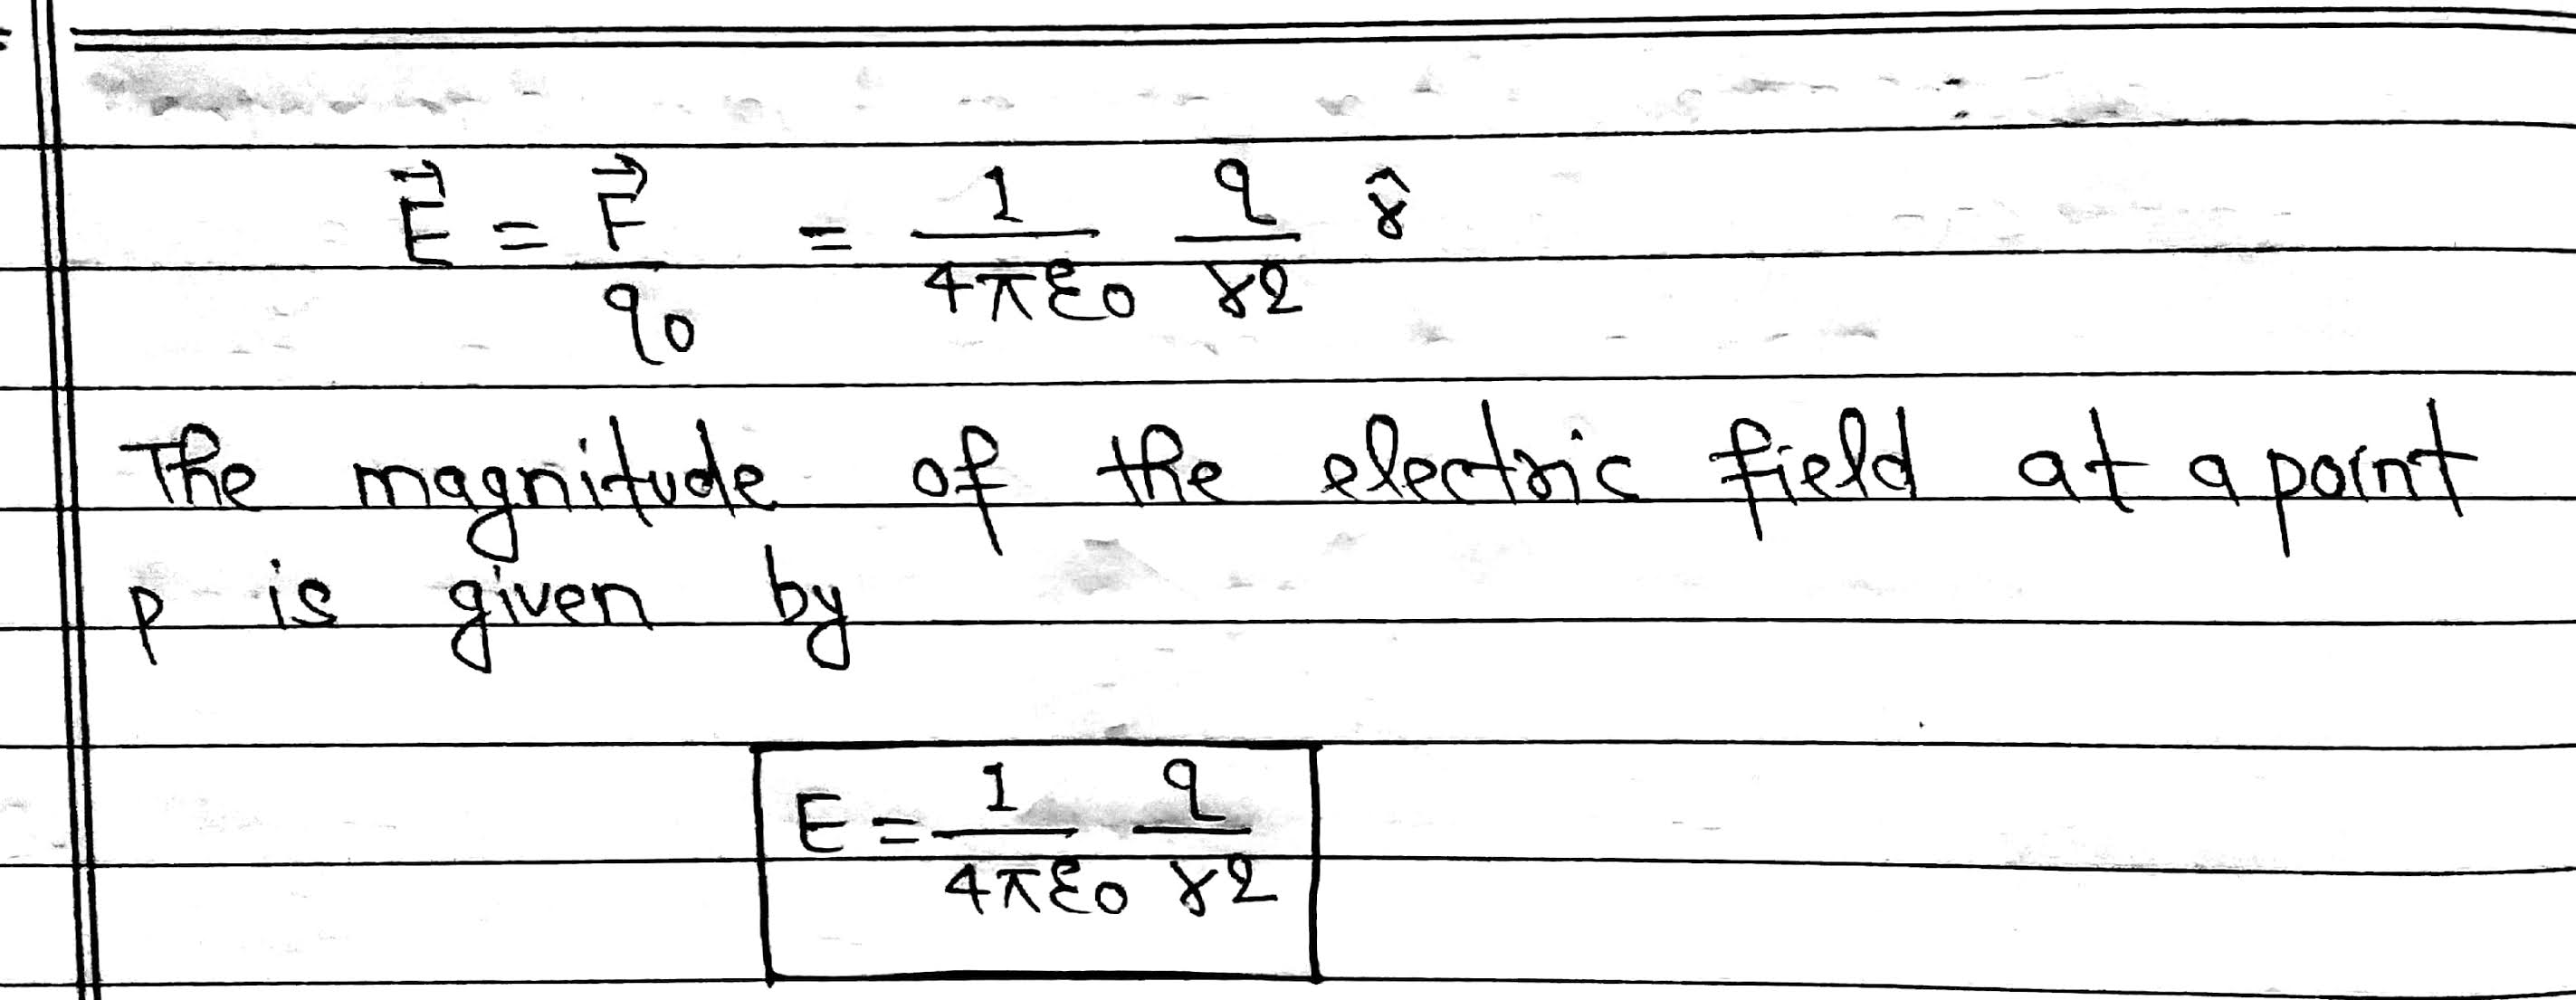 E⃗ = F⃗/q0 = 1/4πε0 q/r2 r̂
The magnitude of the electric field at a point
p is given by
E = 1/4πε0 q/r2